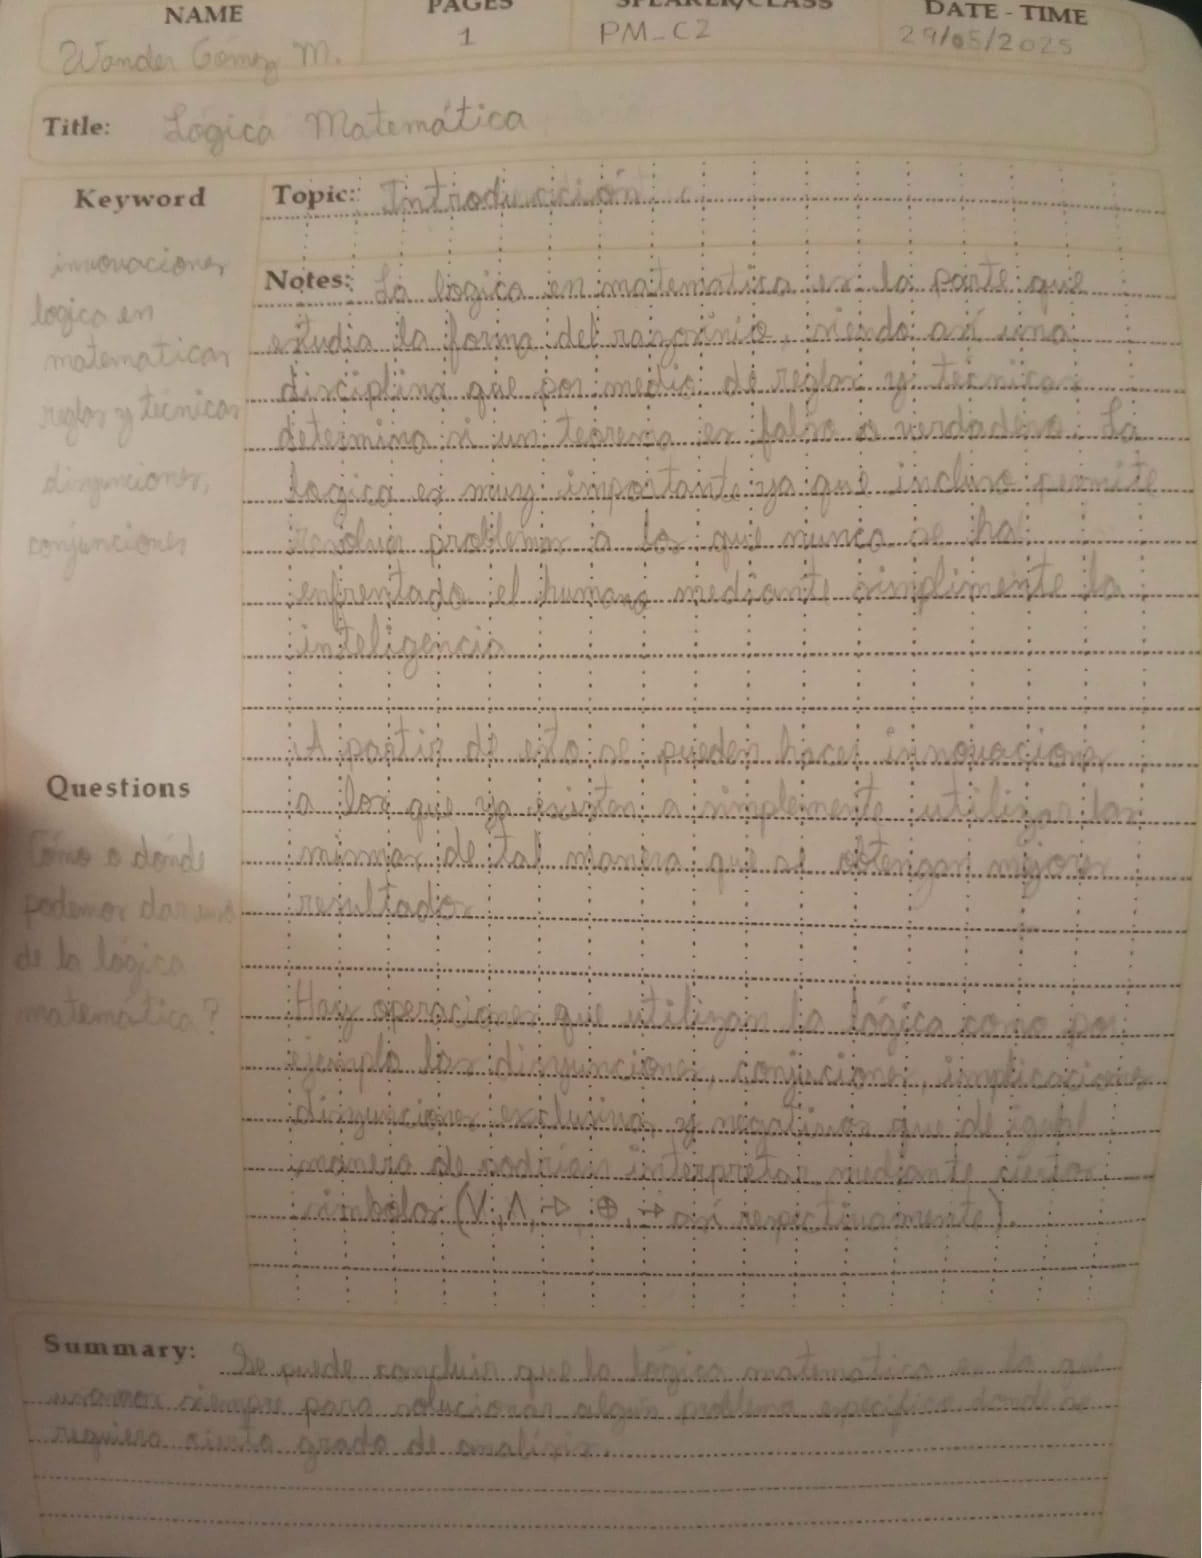 NAME
PAGES
SPEAKER/CLASS
DATE - TIME
Wander Gómez M.
1
PM_C2
29/05/2025
Title: Lógica Matemática
Keyword
innovaciones
logica en
matematicas
reglas y técnicas
disyunciones,
conjunciones
Topic: Introducción
Notes: La logica en matematica es la parte que
estudia la forma del razoninio, siendo así una
disciplina que por medio de reglas y técnicas
determina si un teorema es falso o verdadero. La
logica es muy importante ya que incluso permite
resolver problemas a los que nunca se ha
enfrentado el humano mediante simplimente la
inteligencia
A partir de esto se pueden hacer innovacions
a las que ya existen o simplemente utilizar las
mismas de tal manera que se obtengan mejores
resultados
Hay operaciones que utilizan la lógica como por
ejemplo las disyunciones, conjuciones, implicaciones
disyunciones exclusivas y negativas que de igual
manera de podrian interpretar mediante ciertos
simbolos (V, Λ, →, ⊕, así respectivamente).
Questions
Cómo o dónde
podemos dar uso
de la lógica
matemática?
Summary: Se puede concluir que la lógica matematica es la que
usamos siempre para solucionar algún problema especifico donde se
requiera cierto grado de analisis.